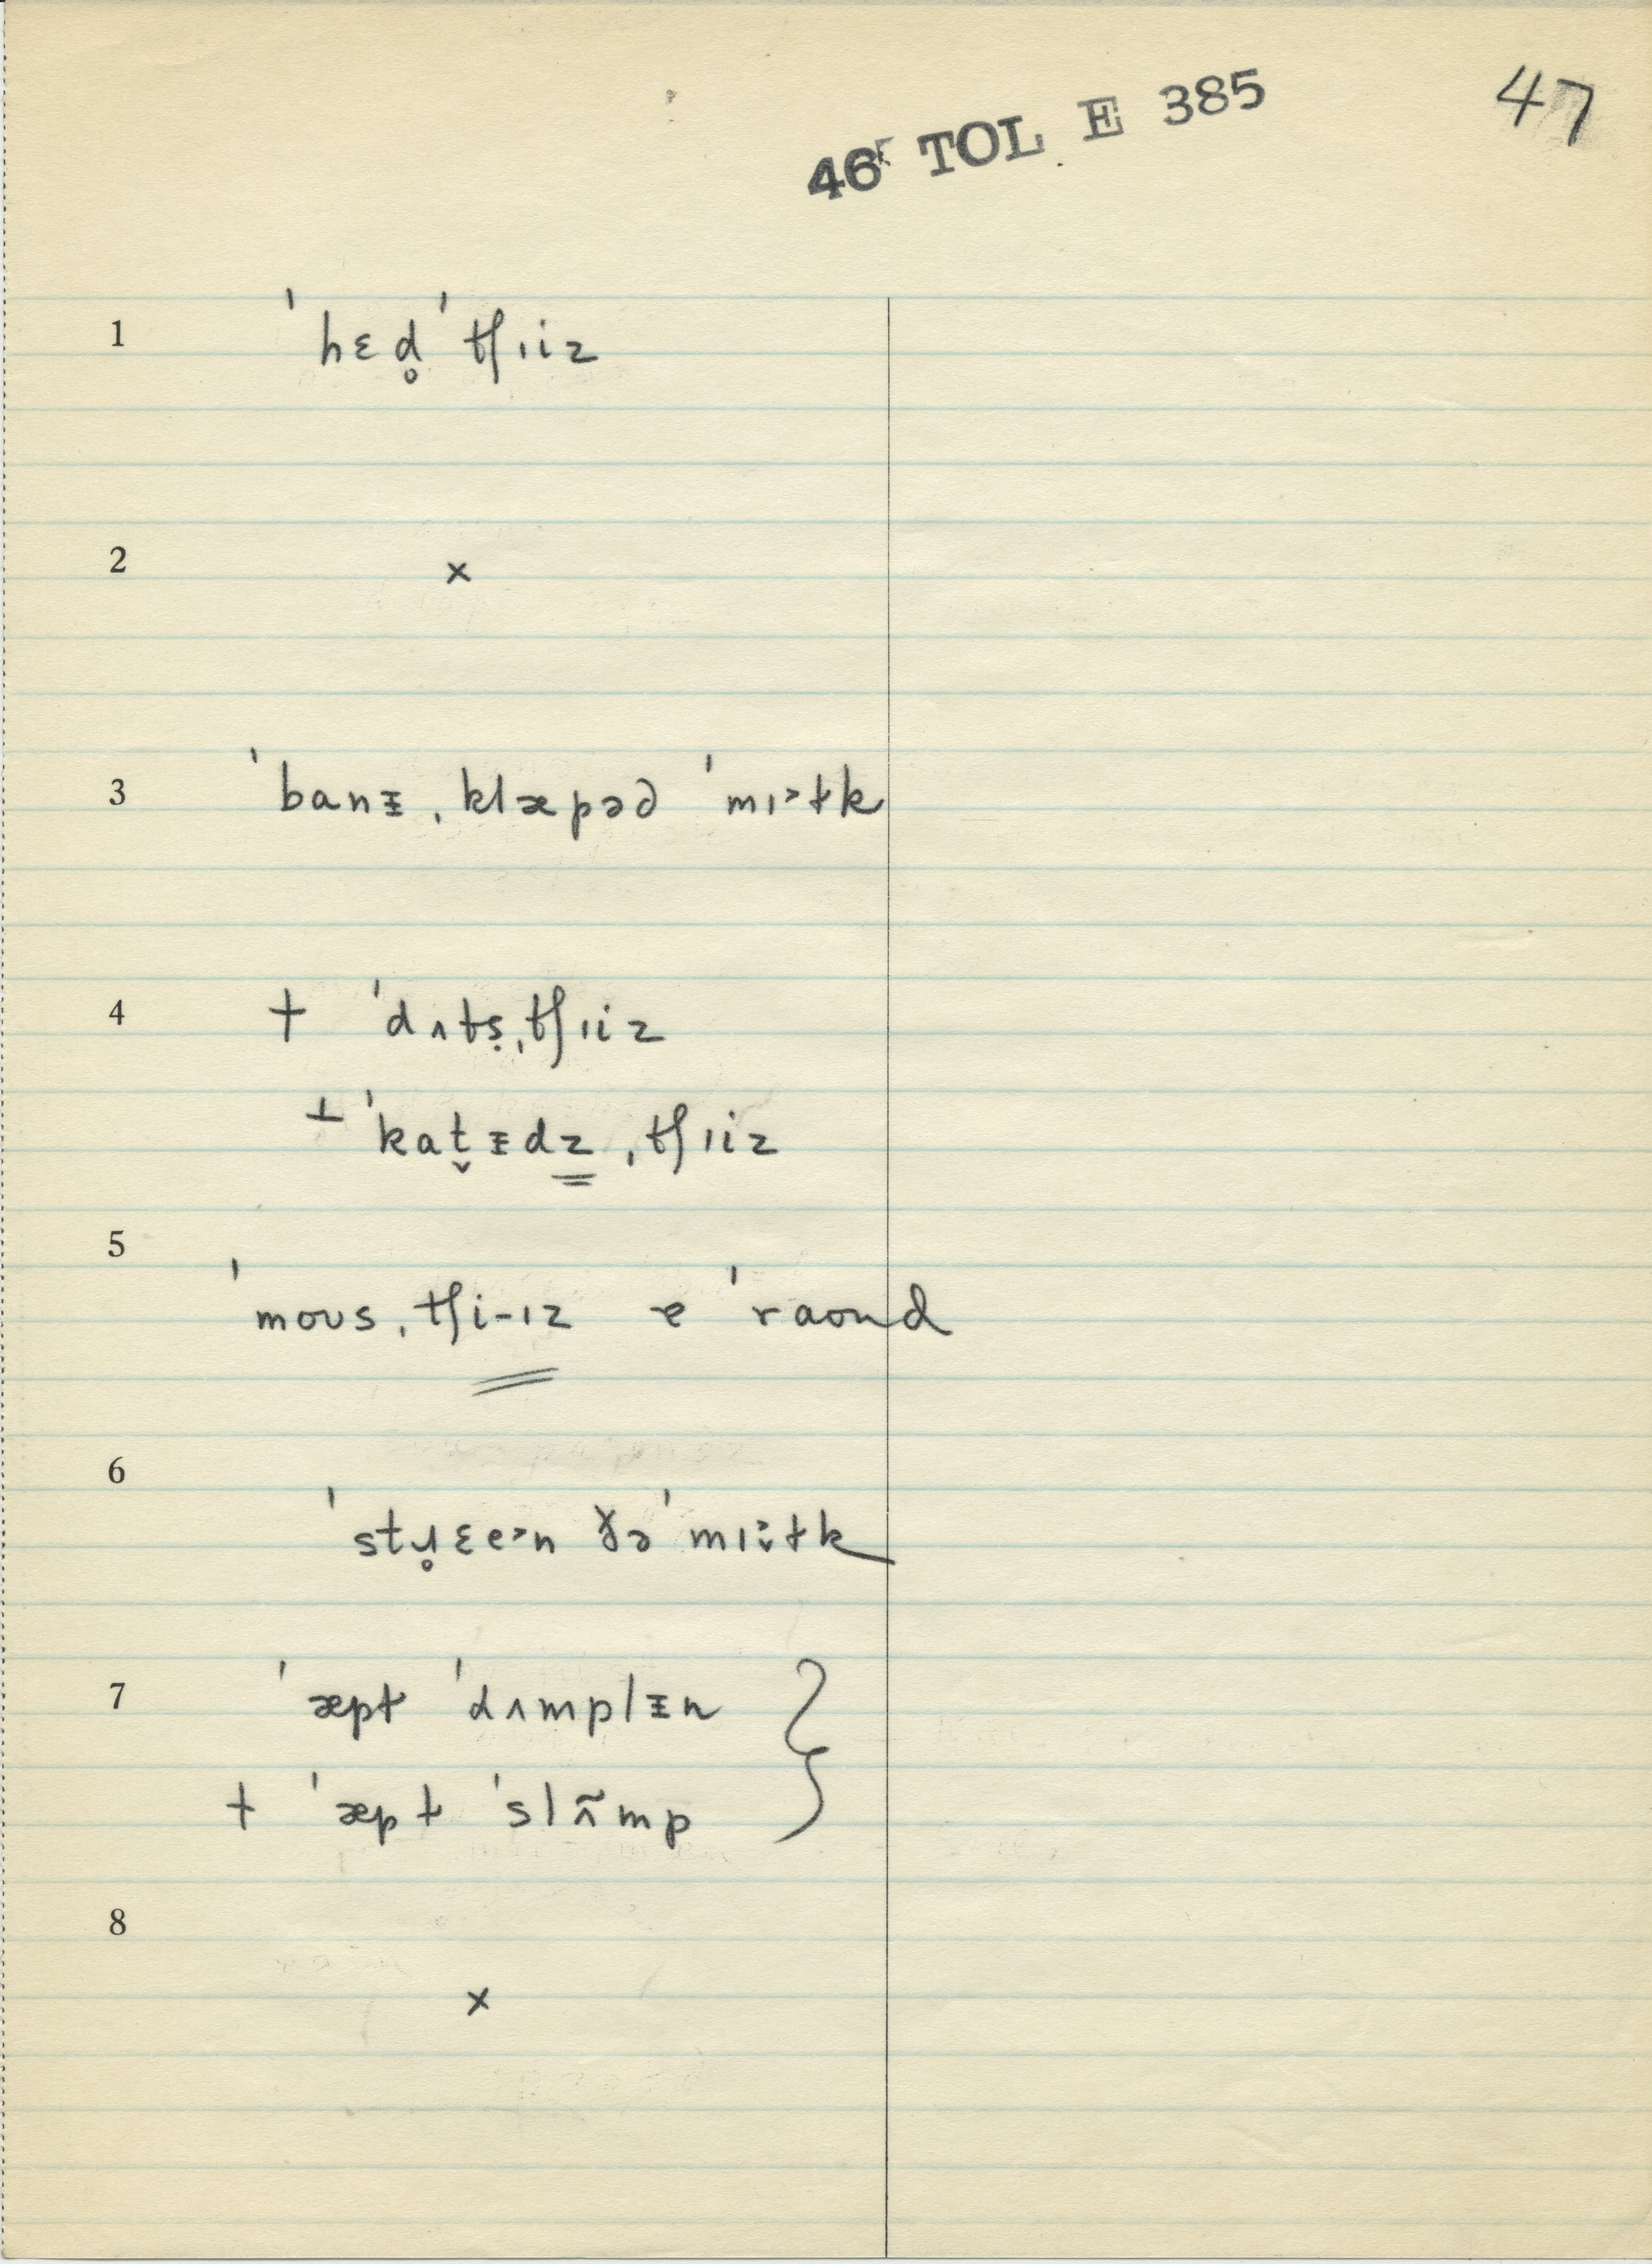 46 TOL E 385 47
1 ˈhɛd̥ ˈtʃɪiz
2 ×
3 ˈbanᵻ ˌklæpəd ˈmɪ˃ɫk
4 + ˈdʌtṣˌtʃɪiz
⊥ ˈkat̬ᵻdz̳ ˌtʃɪiz
5 ˈmoʊs ˌtʃi-ɪz ɐ ˈraʊnd
6 ˈstɹ̥ɛe˃n ðə ˈmɪ˃̬ɫk
7 ˈæpɫ ˈdʌmplᵻn
+ ˈæpɫ ˈslʌ̃mp
8 ×